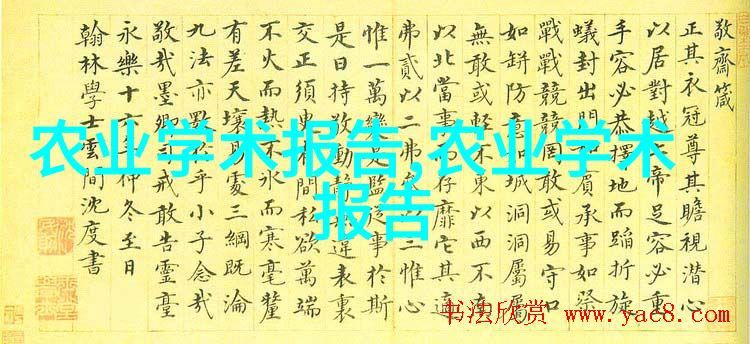 敬齋箴
正其衣冠尊其瞻視潛心
以居對越上帝足容必重
手容必恭擇地而蹈折旋
蟻封出門如賓承事如祭
戰戰兢兢罔敢或易守口
如缾防意如城洞洞屬屬
無敢或輕不東以西不南
以北當事而存靡它其適
弗貳以二弗以三惟心
惟一萬變是監從事於斯
是日持敬動靜違表裏
交正須臾間私欲萬端
不火而熱不冰而寒毫釐
有差天壤易處三綱既淪
九法亦斁於乎小子念哉
敬哉墨卿司戒敢告靈臺
永樂十六年仲冬至日
翰林學士雲間沈度書
农业学术报告,农业学术
报告
书法欣赏
www.yac8.com